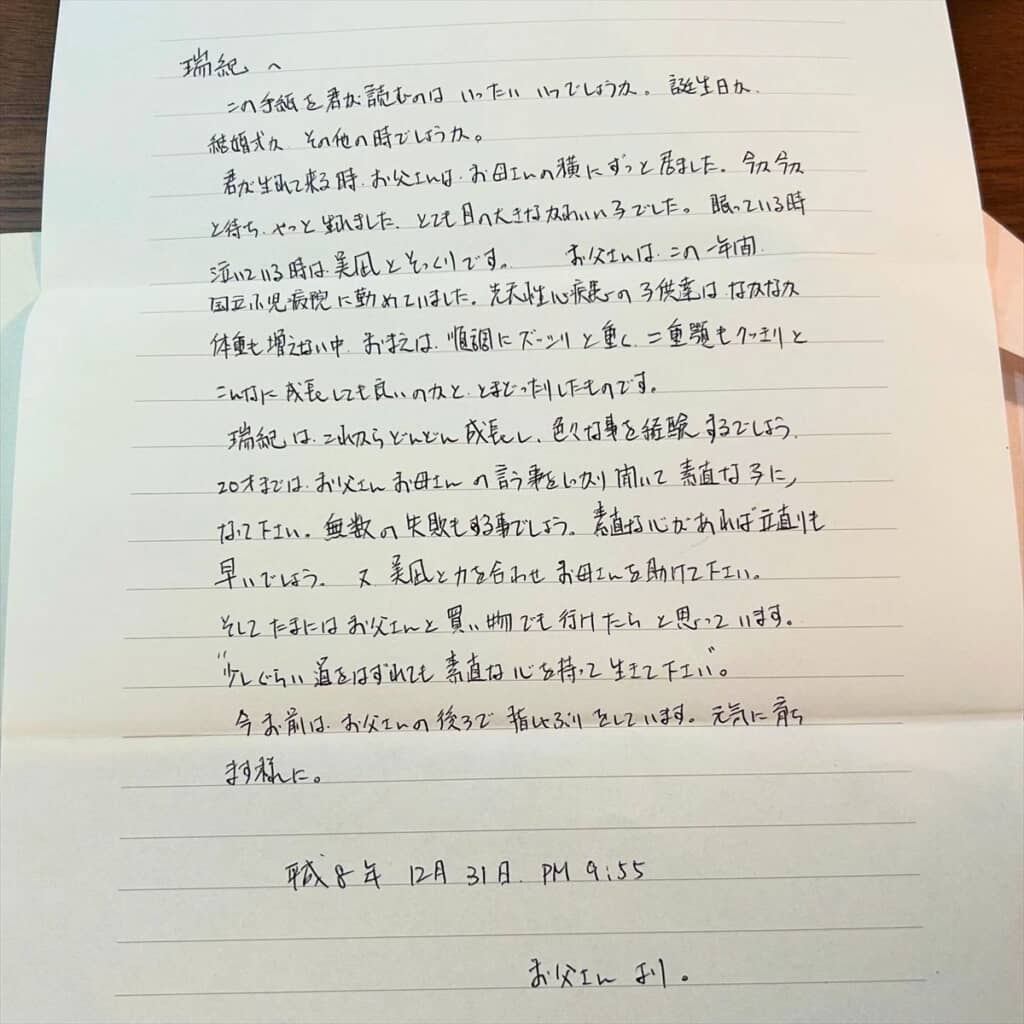 瑞紀へ
この手紙を君が読むのは いったい いつでしょうか。誕生日か、
結婚式か、その他の時でしょうか。
君が生れて来る時、お父さんは、お母さんの横にずっと居ました。今か今か
と待ち、やっと生れました。とても目の大きなかわいい子でした。眠っている時
泣いている時は、美凪とそっくりです。 お父さんは、この一年間、
国立小児病院に勤めていました。先天性心疾患の子供達は、なかなか
体重も増えない中、おまえは、順調にズッシリと重く、二重顎もクッキリと
こんなに成長しても良いのかと、とまどったりしたものです。
瑞紀は、これからどんどん成長し、色々な事を経験するでしょう。
20才までは、お父さんお母さんの言う事をしっかり聞いて素直な子に、
なって下さい。無数の失敗もする事でしょう。素直な心があれば立直りも
早いでしょう。又 美凪と力を合わせ お母さんを助けて下さい。
そしてたまにはお父さんと買い物でも行けたらと思っています。
"少しぐらい道をはずれても素直な心を持って生きて下さい"。
今お前は、お父さんの後ろで指しゃぶりをしています。元気に育ち
ます様に。
平成8年 12月31日 PM 9:55
お父さん より。